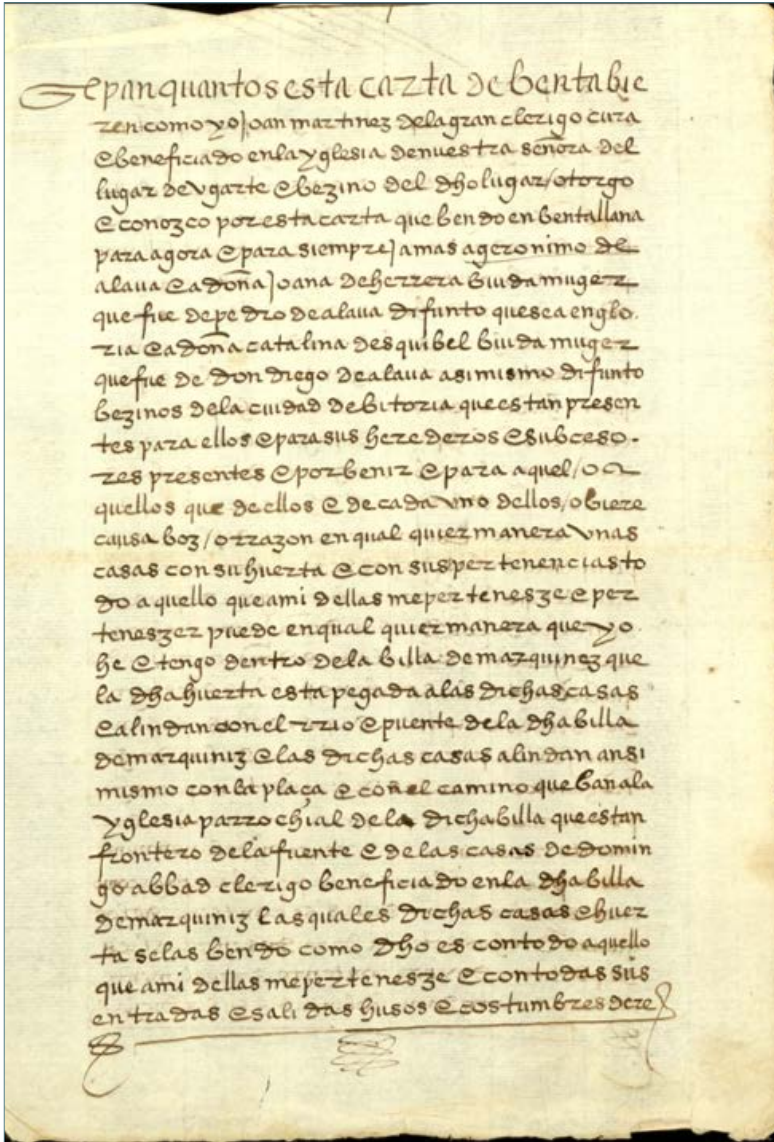 Sepan quantos esta carta de benta bie
ren como yo Joan martinez de lagran clerigo cura
e beneficiado en la yglesia de nuestra señora del
lugar de ugarte e bezino del dho lugar / otorgo
e conozco por esta carta que bendo en benta llana
para agora e para siempre Jamas a geronimo de
alaua e a doña Joana de herrera biuda muger
que fue de pedro de alaua difunto que sea en glo
ria e a doña catalina desquibel biuda muger
que fue de don diego de alaua asi mismo difunto
bezinos de la ciudad de bitoria que estan presen
tes para ellos e para sus herederos e subceso
res presentes e por benir e para aquel / o a
quellos que de ellos e de cada uno dellos / obiere
causa boz / o rrazon en qual quier manera unas
casas con su huerta e con sus pertenencias to
do aquello que a mi dellas me pertenesze e per
teneszer puede en qual quier manera que yo
he e tengo dentro de la billa de marquinez que
la dha huerta esta pegada a las dichas casas
e alindan con el rrio e puente de la dha billa
de marquiniz e las dichas casas alindan ansi
mismo con la plaça e con el camino que ban a la
yglesia parrochial de la dicha billa que estan
frontero de la fuente e de las casas de domin
go abbad clerigo beneficiado en la dha billa
de marquiniz las quales dichas casas e huer
ta se las bendo como dho es con todo aquello
que a mi dellas me pertenesze e con todas sus
entradas e salidas husos e costumbres dere